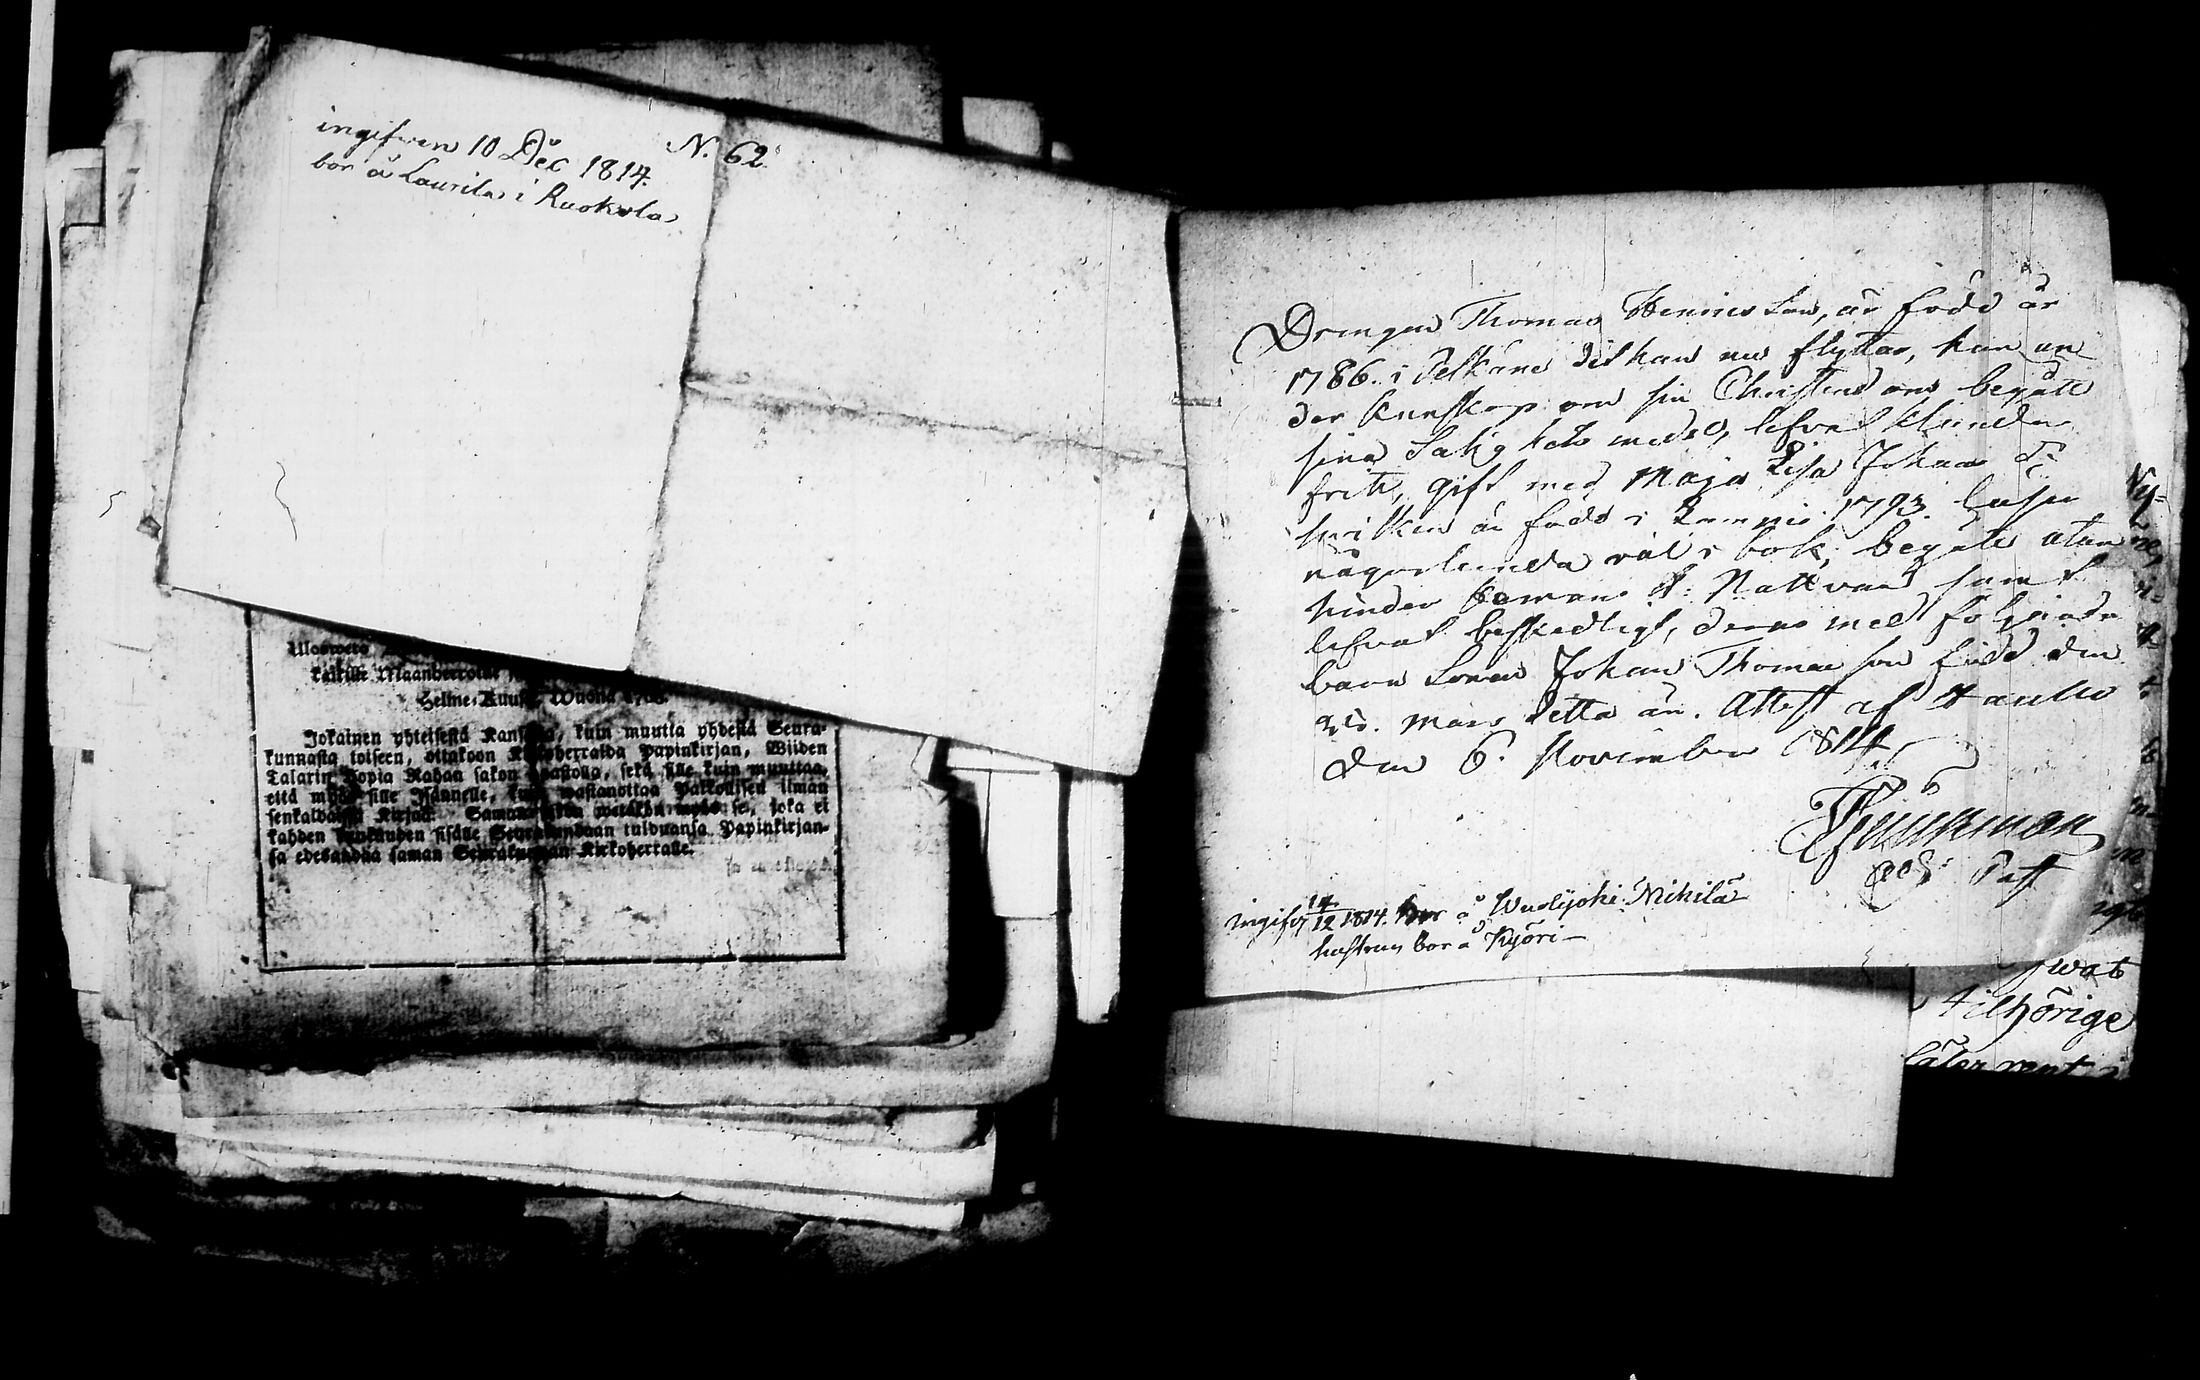 ingifwen 10 Dec 1814.
bor å Laurila i Ruokola
N. 62.
Ulosweto
kaikille Maanherroille
Helme-Kuusa, Wuonna
Jokainen yhteisestä Kansasta, kuin muutta yhdestä Seura-
kunnasta toiseen, ottakoon Kirkoherralda Papinkirjan, Wiiden
Talarin Hopia Rahan sakon haastolla, sekä sille kuin muuttaa,
että myös sille Isännelle, kuin wastanottaa Palkollisen ilman
senkaldaista Kirjaa. Saman sakon wetäkön myös se, joka ei
kahden kuukauden sisälle Seurakundaan tulduansa Papinkirjan-
sa edesanna saman Seurakunnan Kirkoherralle.
Drengen Thomas Henrics Son, är född år
1786. i Pelkäne dit han nu flyttar, han un-
der kunskap om sin Christendom begått
sina Salighets medel, lefvat klander
fritt, gift med Maja Lisa Johans Dr
hvilken är född i 1793. läser
någorlunda väl i bok, begått utan
hinder Herrans H: Nattvard samt
lefvat beskedligt, deras medföljande
barn Sonen Johan Thomasson född den
Mars detta år. Attest af Hauho
den 6. November 1814.
Adj: Past
ingifv 14/12 1814. bor å Wuolijoki Mikilä
hustrun bor å Kyöri
wat
tilhörige